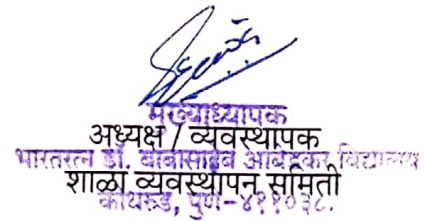 मुख्याध्यापक
अध्यक्ष / व्यवस्थापक
भारतरत्न डॉ. बाबासाहेब आंबेडकर विद्यालय
शाळा व्यवस्थापन समिती
कोथरुड, पुणे-४११०३८.